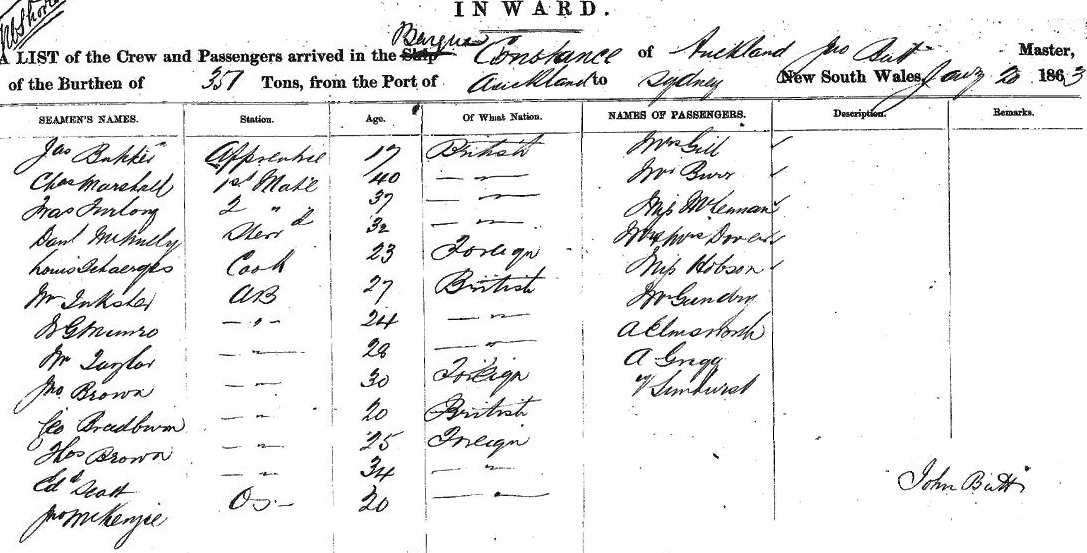 INWARD.
Barque
A LIST of the Crew and Passengers arrived in the Ship Constance of Auckland Jno Butt Master,
of the Burthen of 357 Tons, from the Port of Auckland to Sydney New South Wales, Jany 20 1863
SEAMEN'S NAMES. Station. Age. Of What Nation. NAMES OF PASSENGERS. Description. Remarks.
Jas Apprentice 17 British Mrs Gill
Chas Marshall 1st Mate 40 — " — Mr Burr
Fras Furlong 2 " " 37 — " — Miss McLennan
Danl McNully Stewd 32 — " — Mr & Mrs
Louis Schaerges Cook 23 Foreign Miss Hobson
Wm Inkster AB 27 British Mr Gundry
W G Munro — " — 24 — " — A Elmsworth
Wm Taylor — " — 28 — " — A Grigg
Jno Brown — " — 30 Foreign
Geo Bradburn — " — 20 British
Thos Brown — " — 25 Foreign
Edd Scott — " — 34 — " —
Jno McKenzie OS — 20 — " —
John Butt